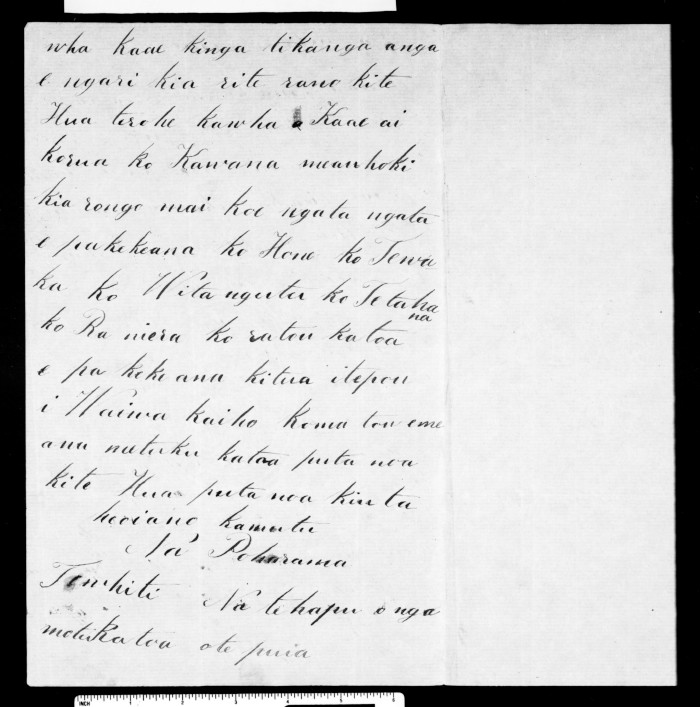 wha Kaae kinga tikanga anga
e ngari kia rite rano kite
Hua terohe kawha a Kaae ai
korua ko Kawana meauhoki
kia rongo mai koe ngata ngata
e pakekeana ko Hone ko Tewa
ka ko Wita ngutu ko Tetaha
na
ko Ra niera ko ratou katoa
e pa keke ana kitua itepou
i Waiwa kaiho koma tou eme
ana metuku katoa puta noa
kite Hua puta noa kiuta
heoiano kamutu
Na Poharama
Tewhiti Na tehapu o nga
motu Katoa ote puia
INCH 1 2 3 4 5 6